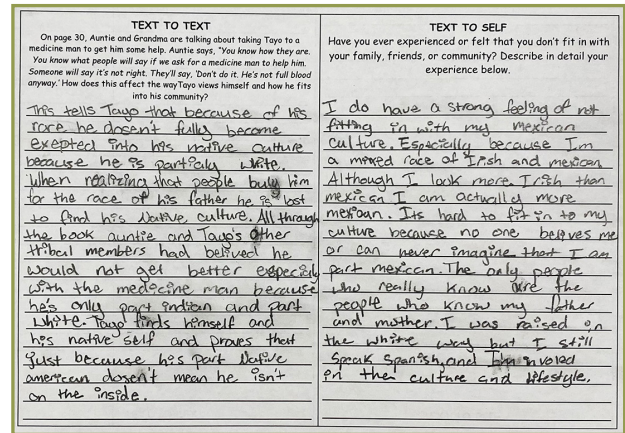 TEXT TO TEXT
On page 30, Auntie and Grandma are talking about taking Tayo to a
medicine man to get him some help. Auntie says, "You know how they are.
You know what people will say if we ask for a medicine man to help him.
Someone will say it's not right. They'll say, 'Don't do it. He's not full blood
anyway.' How does this affect the wayTayo views himself and how he fits
into his community?
This tells Tayo that because of his
race he dosen't fully become
exepted into his native culture
because he is particaly white.
When realizing that people buly him
for the race of his father he is lost
to find his Native culture. All through
the book auntie and Tayo's other
tribal members had belived he
would not get better especialy
with the medecine man because
he's only part indian and part
white. Tayo finds himself and
his native self and proves that
just because his part Native
american dosen't mean he isn't
on the inside.
TEXT TO SELF
Have you ever experienced or felt that you don't fit in with
your family, friends, or community? Describe in detail your
experience below.
I do have a strong feeling of not
fitting in with my mexican
culture. Especially because I'm
a mixed race of Irish and mexican
Although I look more Irish than
mexican I am actually more
mexican. Its hard to fit in to my
culture because no one belives me
or can never imagine that I am
part mexican. The only people
who really know are the
people who know my father
and mother. I was raised in
the white way but I still
speak spanish, and I'm involed
in the culture and lifestyle.